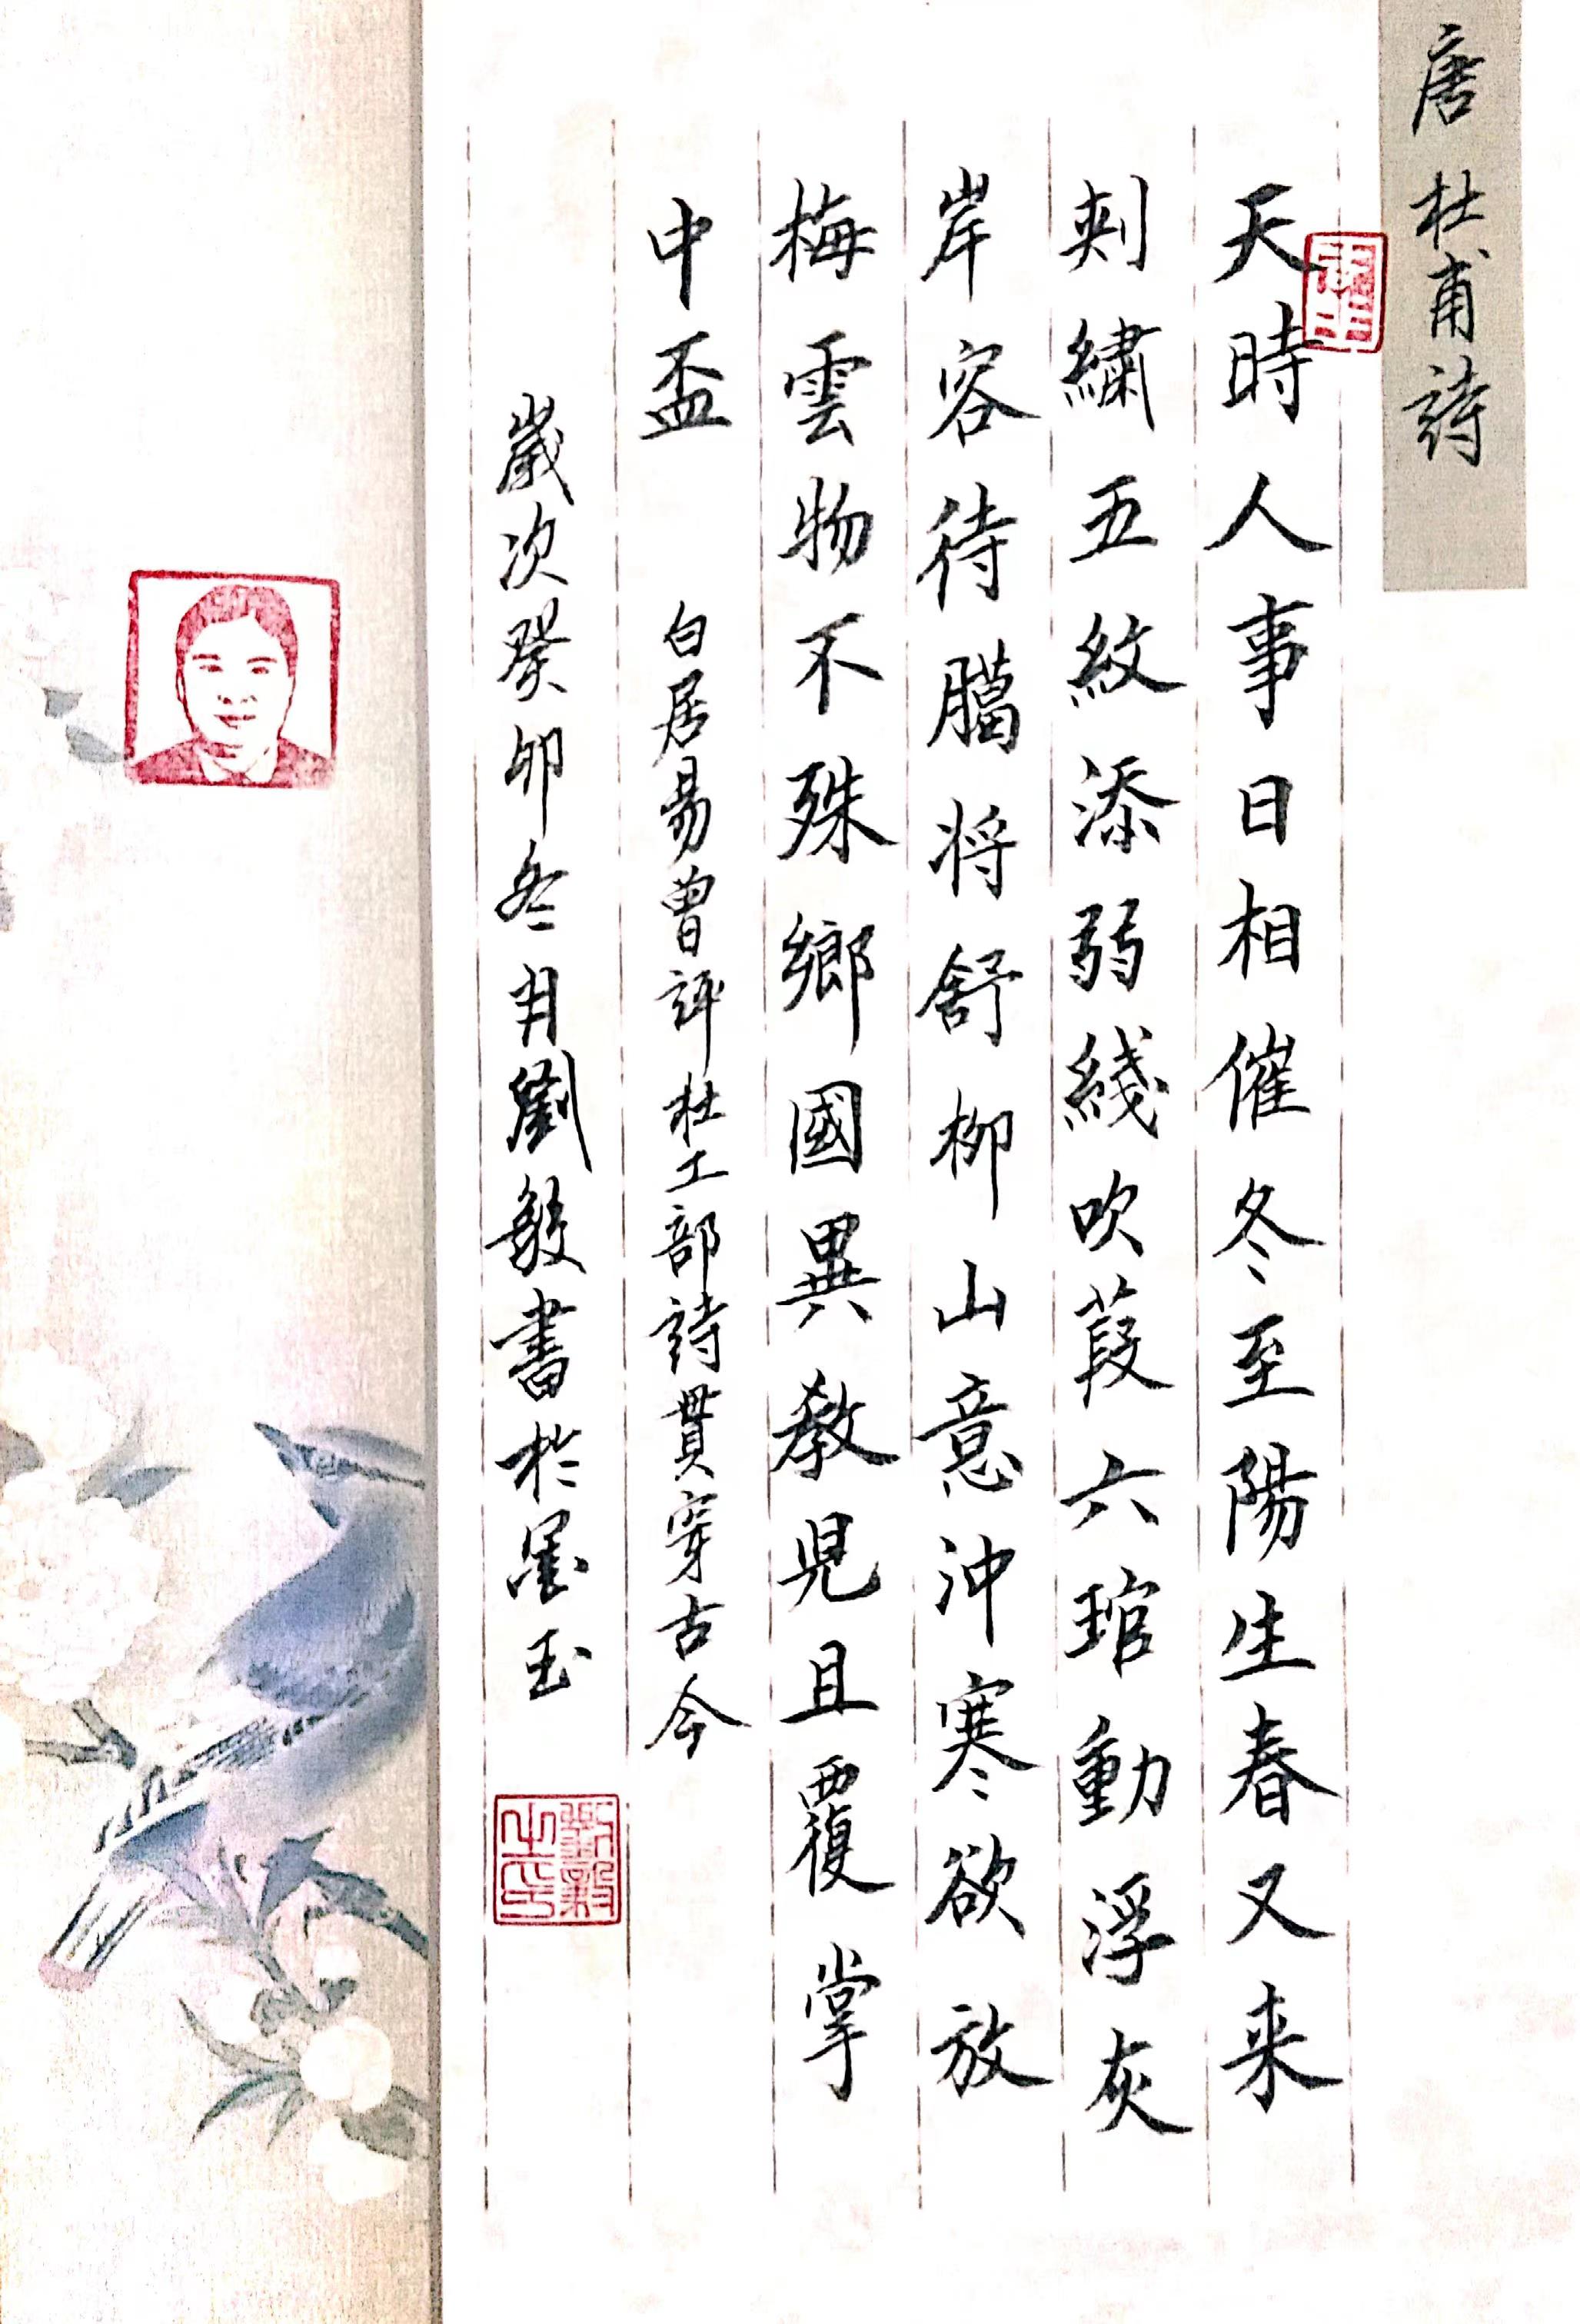 唐杜甫詩
天時人事日相催冬至陽生春又来
刺繡五紋添弱綫吹葭六琯動浮灰
岸容待臈将舒柳山意沖寒欲放
梅雲物不殊鄉國異教兒且覆掌
中盃 白居易曾評杜工部詩貫穿古今
歲次癸卯冬月劉毅書於墨玉
劉毅之印